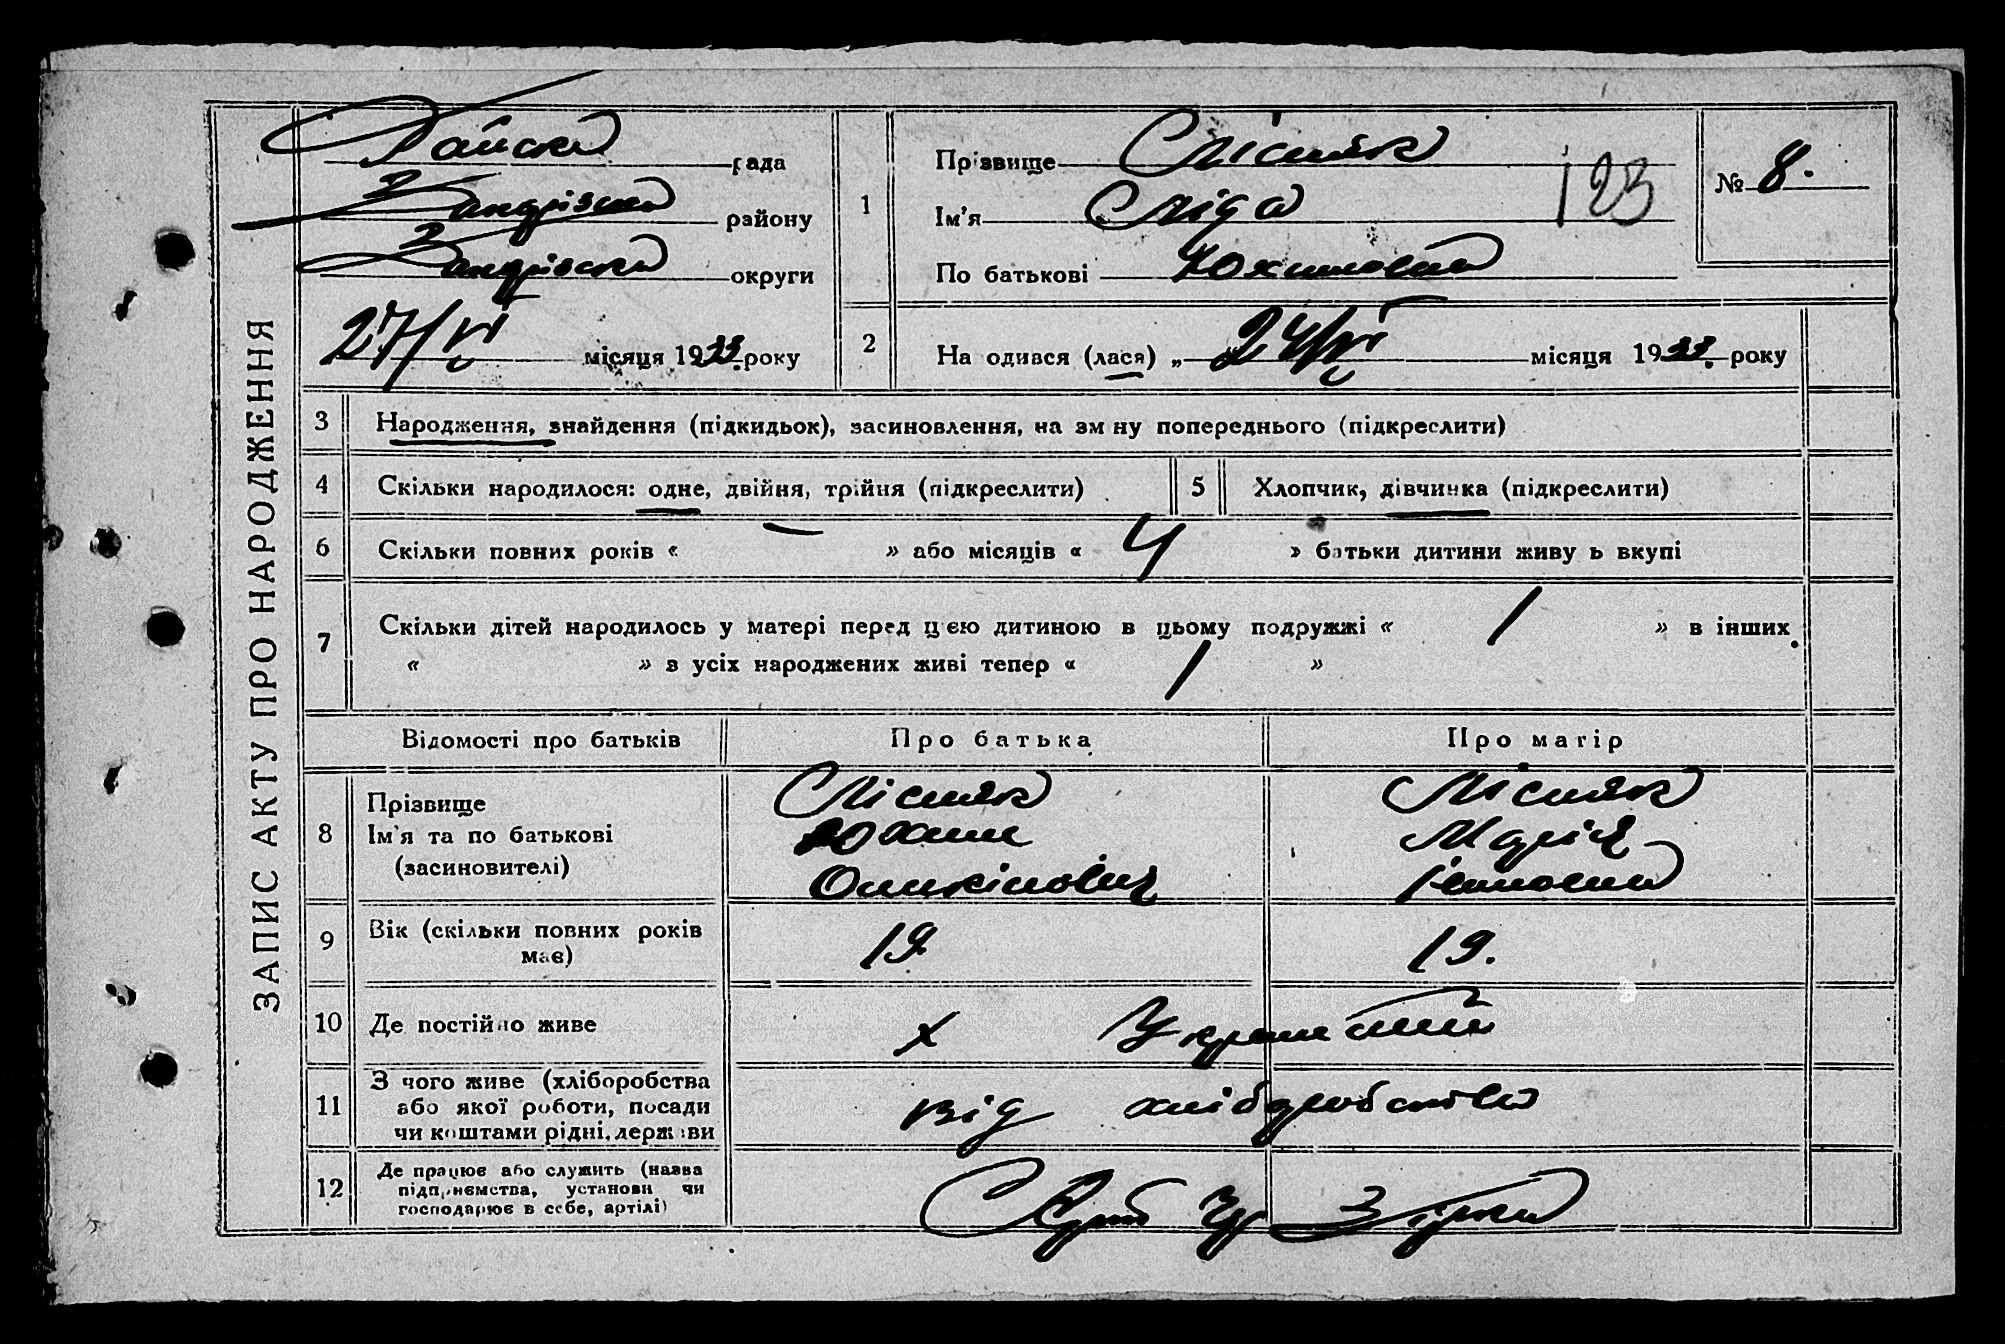 ЗАПИС АКТУ ПРО НАРОДЖЕННЯ
рада
району
округи
27/VI місяця 1933 року
1
Прізвище
Ім'я Сліда
По батькові Юхимовна
123
№ 8.
2
Народився (лася) „ 24/VI місяця 1933. року
3 Народження, знайдення (підкидьок), засиновлення, на зміну попереднього (підкреслити)
4 Скільки народилося: одне, двійня, трійня (підкреслити)
5 Хлопчик, дівчинка (підкреслити)
6 Скільки повних років « — » або місяців « 4 » батьки дитини живуть вкупі
7 Скільки дітей народилось у матері перед цією дитиною в цьому подружжі « 1 » в інших
« » з усіх народжених живі тепер « 1 »
Відомості про батьків Про батька Про матір
8 Прізвище
Ім'я та по батькові Юхим Марія
(засиновителі)
9 Вік (скільки повних років має) 19 19.
10 Де постійно живе х
11 З чого живе (хліборобства або якої роботи, посади чи коштами рідні, держави від хліборобства
12 Де працює або служить (назва підприємства, установи чи господарює в себе, артілі)